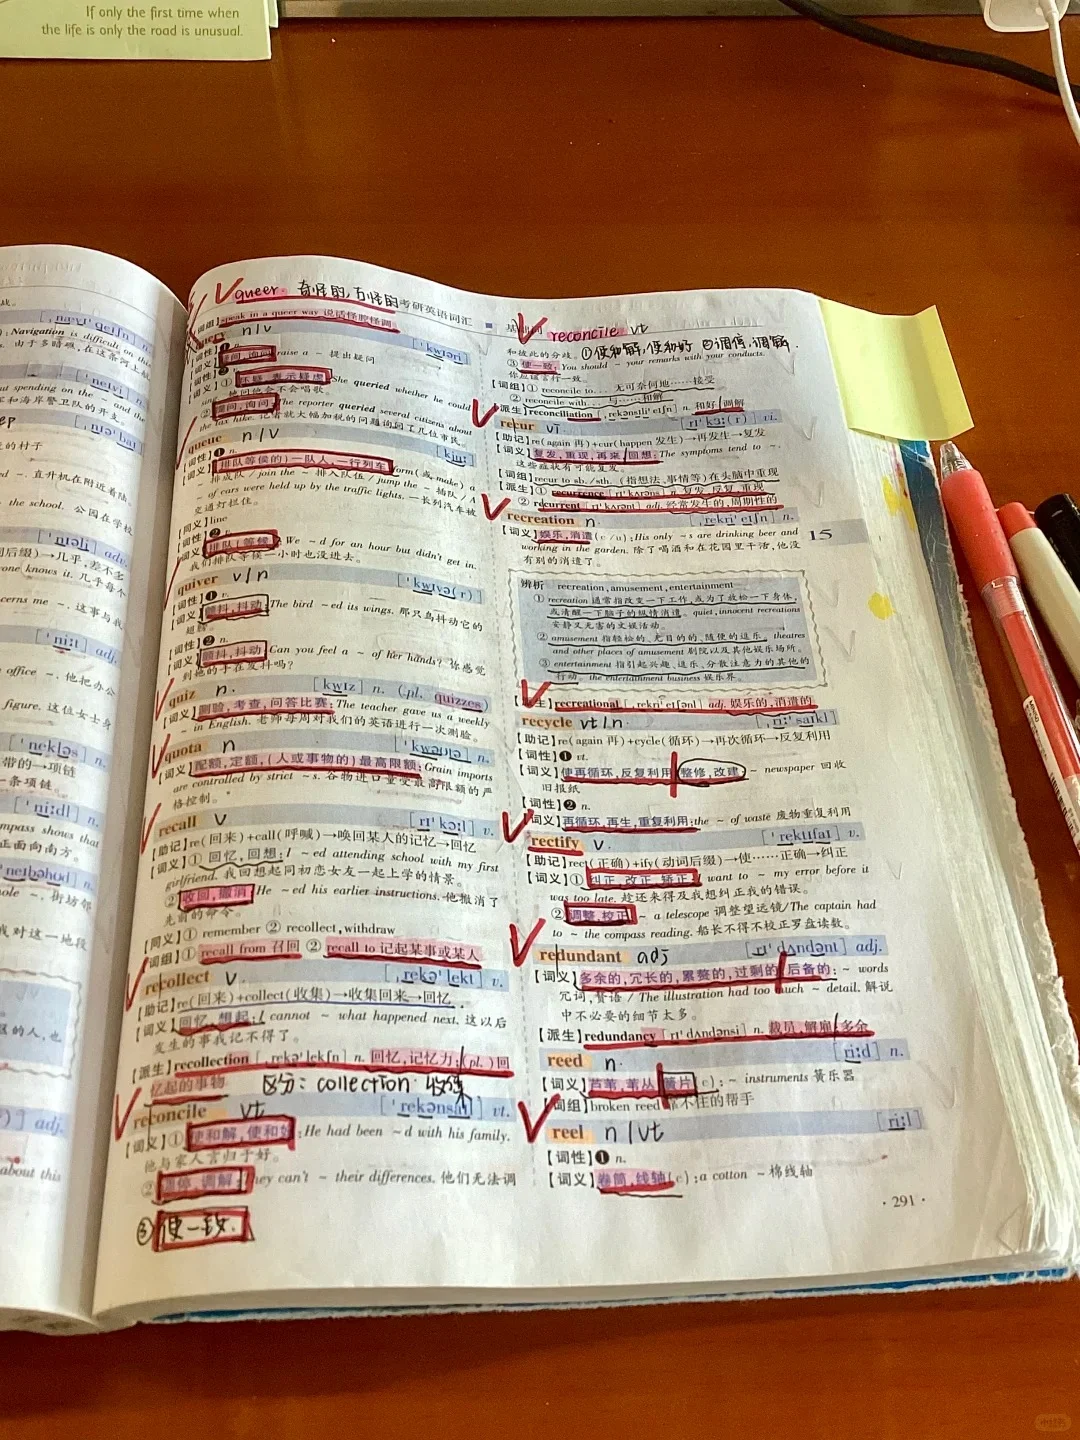 If only the first time when
the life is only the road is unusual.
queer. 奇怪的,古怪的 考研英语词汇
【词组】speak in a queer way 说话怪腔怪调
n/v
【词性】❶ n.
质问,询问 raise a ~ 提出疑问
【词性】❷
【词义】① 怀疑,表示疑虑 She queried whether he could
② 提问,询问 The reporter queried several citizens about
the tax hike. 记者就大幅加税的问题询问了几位市民。
queue n/v [kjuː]
【词性】❶ n.
【词义】排队等候的)一队人,一行列车 form(或,make) a
~ 排成队/ join the ~ 排入队伍/ jump the ~ 插队/ A
~ of cars were held up by the traffic lights. 一长列汽车被
交通灯拦住。
【同义】line
【词性】❷ n.
【词义】排队(等候) We ~d for an hour but didn't get in.
我们排队等候一小时也没进去。
quiver v/n [ˈkwɪvə(r)]
【词性】❶ v.
【词义】颤抖,抖动 The bird ~ed its wings. 那只鸟抖动它的
翅膀。
【词性】❷ n.
【词义】颤抖,抖动 Can you feel a ~ of her hands? 你感觉
到她的手在发抖吗?
quiz n. [kwɪz] n. (pl. quizzes)
【词义】测验,考查,问答比赛: The teacher gave us a weekly
~ in English. 老师每周对我们的英语进行一次测验。
quota n [ˈkwəʊtə] n.
【词义】配额,定额,(人或事物的)最高限额: Grain imports
are controlled by strict ~s. 谷物进口量受最高限额的严
格控制。
recall v [rɪˈkɔːl] v.
【助记】re(回来)+call(呼喊)→唤回某人的记忆→回忆
【词义】① 回忆,回想: I ~ed attending school with my first
girlfriend. 我回想起同初恋女友一起上学的情景。
② 收回,撤消 He ~ed his earlier instructions. 他撤消了
先前的命令。
【同义】① remember ② recollect, withdraw
【词组】① recall from 召回 ② recall to 记起某事或某人
recollect v. [ˌrekəˈlekt] v.
【助记】re(回来)+collect(收集)→收集回来→回忆
【词义】回忆,想起: I cannot ~ what happened next. 这以后
发生的事我记不得了。
【派生】recollection [ˌrekəˈlekʃn] n. 回忆,记忆力; (pl.)回
忆起的事物 区分: collection 收集
reconcile vt [ˈrekənsaɪl] vt.
【词义】① 使和解,使和好: He had been ~d with his family.
他与家人言归于好。
② 调停,调解: They can't ~ their differences. 他们无法调
③ 使一致.
reconcile vt
和彼此的分歧。①使和解,使和好 ②调停,调解.
③ 使一致: You should ~ your remarks with your conducts.
你应该言行一致。
【词组】① reconcile to… 无可奈何地……接受
② reconcile with… 与……和解
【派生】reconciliation [ˌrekənsɪliˈeɪʃn] n. 和好,调解
recur vi [rɪˈkɜː(r)] vi.
【助记】re(again 再)+cur(happen 发生)→再发生→复发
【词义】复发,重现,再来 回想: The symptoms tend to ~.
这些症状有可能复发。
【词组】recur to sb./sth. (指想法、事情等)在头脑中重现
【派生】① recurrence [rɪˈkʌrəns] n. 复发,反复,重现
② recurrent [rɪˈkʌrənt] adj. 经常发生的,周期性的
recreation n. [ˌrekriˈeɪʃn] n.
【词义】娱乐,消遣(c/u): His only ~s are drinking beer and
working in the garden. 除了喝酒和在花园里干活,他没
有别的消遣了。
15
辨析 recreation, amusement, entertainment
① recreation 通常指改变一下工作,或为了放松一下身体,
或清醒一下脑子的纵情消遣。 quiet, innocent recreations
安静又无害的文娱活动。
② amusement 指轻松的、无目的的、随便的逗乐。 theatres
and other places of amusement 剧院以及其他娱乐场所。
③ entertainment 指引起兴趣、逗乐、分散注意力的其他的
行动。 the entertainment business 娱乐界。
【派生】recreational [ˌrekriˈeɪʃənl] adj. 娱乐的,消遣的
recycle vt/n. [ˌriːˈsaɪkl]
【助记】re(again 再)+cycle(循环)→再次循环→反复利用
【词性】❶ vt.
【词义】使再循环,反复利用 整修,改建 ~ newspaper 回收
旧报纸
【词性】❷ n.
【词义】再循环,再生,重复利用: the ~ of waste 废物重复利用
rectify v. [ˈrektɪfaɪ] v.
【助记】rect(正确)+ify(动词后缀)→使……正确→纠正
【词义】① 纠正,改正,矫正: I want to ~ my error before it
was too late. 趁还来得及我想纠正我的错误。
② 调整,校正 ~ a telescope 调整望远镜/The captain had
to ~ the compass reading. 船长不得不校正罗盘读数。
redundant adj [rɪˈdʌndənt] adj.
【词义】多余的,冗长的,累赘的,过剩的 后备的: ~ words
冗词,赘语 / The illustration had too much ~ detail. 解说
中不必要的细节太多。
【派生】redundancy [rɪˈdʌndənsi] n. 裁员,解雇/多余
reed n. [riːd] n.
【词义】芦苇,苇丛 簧片(c): ~ instruments 簧乐器
【词组】broken reed 靠不住的帮手
reel n/vt [riːl]
【词性】❶ n.
【词义】卷筒,线轴(c): a cotton ~ 棉线轴
· 291 ·